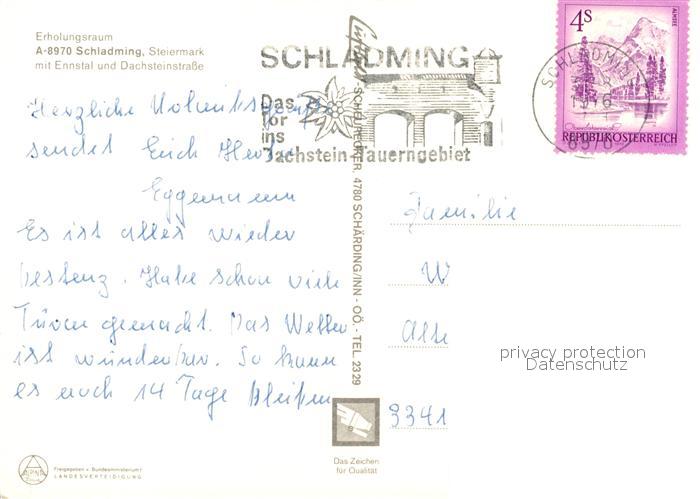 Erholungsraum
A-8970 Schladming, Steiermark
mit Ennstal und Dachsteinstraße
SCHLADMING
Das
Tor
ins
Dachstein-Tauerngebiet
SCHLADMING
1976
8970
4S
ALMSEE
REPUBLIK ÖSTERREICH
Herzliche
sendet Euch
Eggemann
Es ist alles wieder
bestenz. Habe schon viele
Turen gemacht. Das Wetter
ist wunderbar. So kann
es noch 14 Tage bleiben
4780 SCHÄRDING/INN - OÖ. - TEL. 2329
Familie
W
Alte
3341
privacy protection
Datenschutz
Das Zeichen
für Qualität
ALPINA
Freigegeben v. Bundesministerium f.
LANDESVERTEIDIGUNG